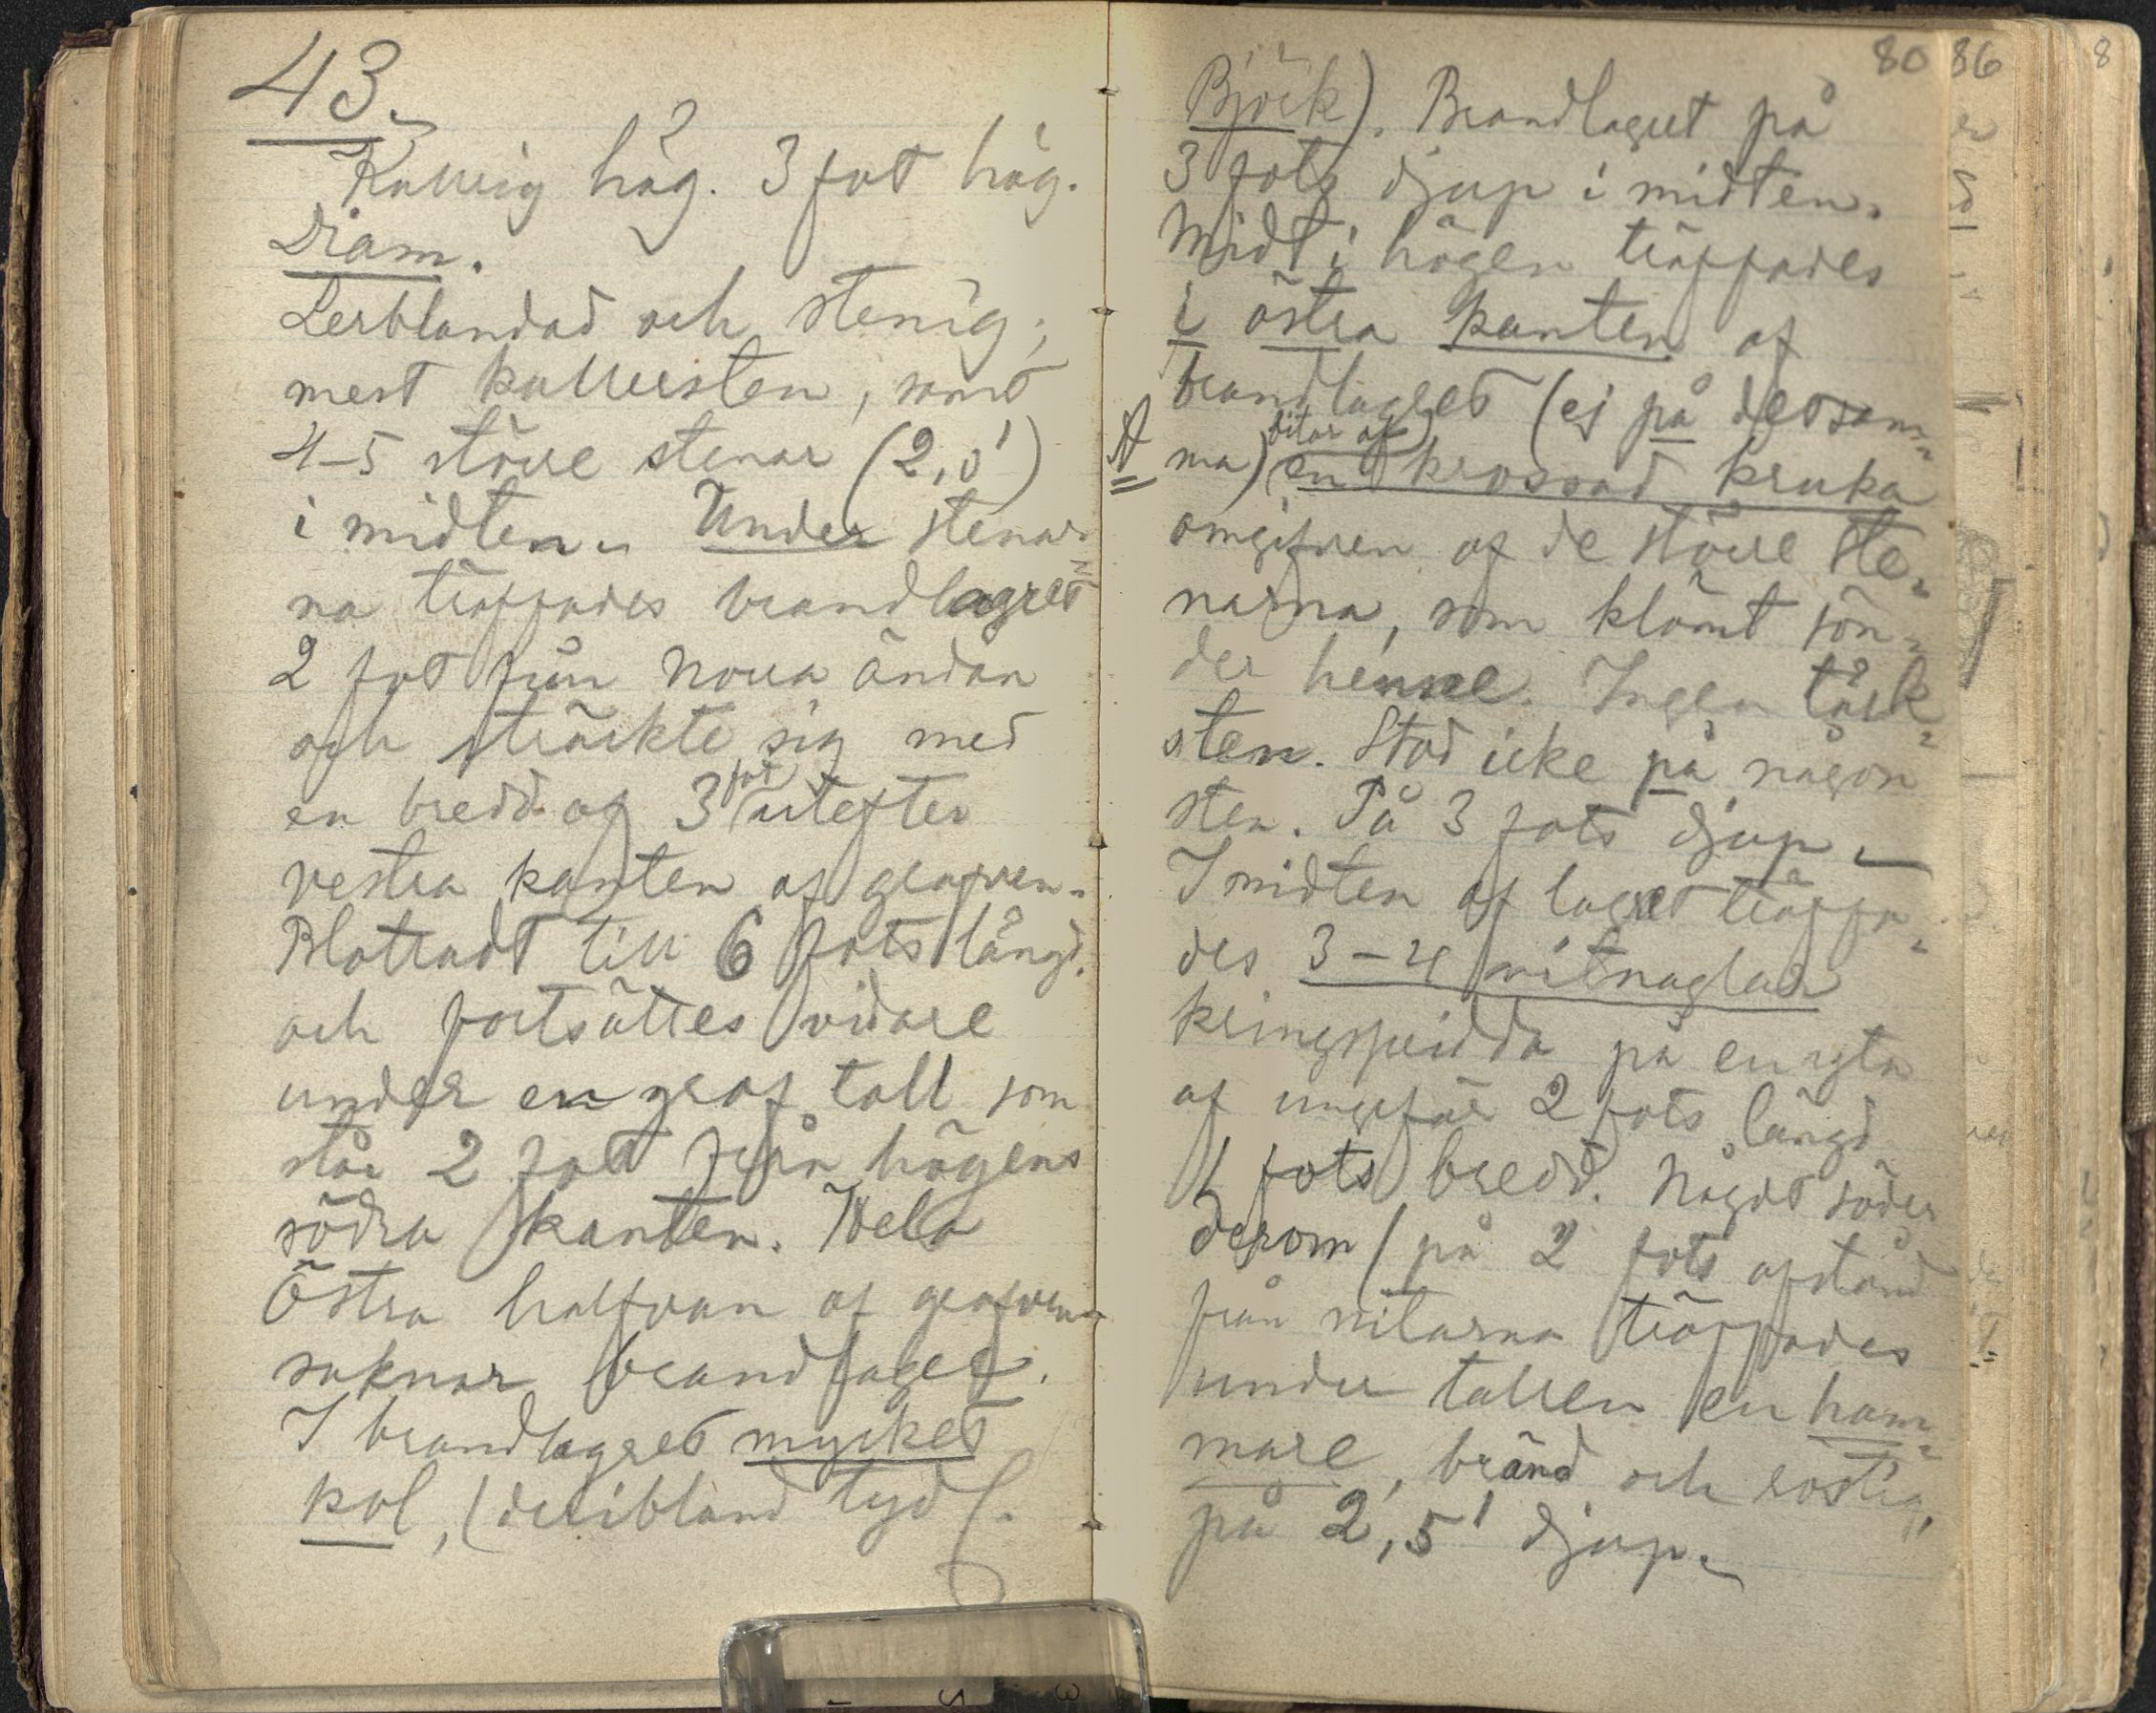 43.
Kullrig hög. 3 fot hög.
Diam.
Lerblandad och stenig;
mest kullersten, samt
4-5 större stenar (2,0')
i midten. Under stenar-
na träffades brandlagret
2 fot från Norra ändan
och sträckte sig med
en bredd af 3 fot utefter
vestra kanten af grafven.
Blottadt till 6 fots längd.
och fortsättes vidare
under en graf tall som
står 2 fot från högens
södra kanten. Hela
Östra halfvan af grafven
saknar brandlager.
I brandlagret mycket
kol, (deribland tydl.
80
Björk). Brandlagret på
3 fots djup i midten.
Midt i högen träffades
i östra kanten af
brandlagret (ej på detsam-
ma) bitar af en krossad kruka
A
omgifven af de större ste-
narna, som klämt sön-
der henne. Ingen täck-
sten. Stod icke på någon
sten. På 3 fots djup.
I midten af lagret träffa-
des 3-4 nitnaglar
kringspridda på en yta
af ungefär 2 fots längd
1 fots bredd. Något söder
derom (på 2 fots afstånd
från nitarna träffades
under tallen en ham-
mare, bränd och rostig,
på 2,5' djup.
86
8